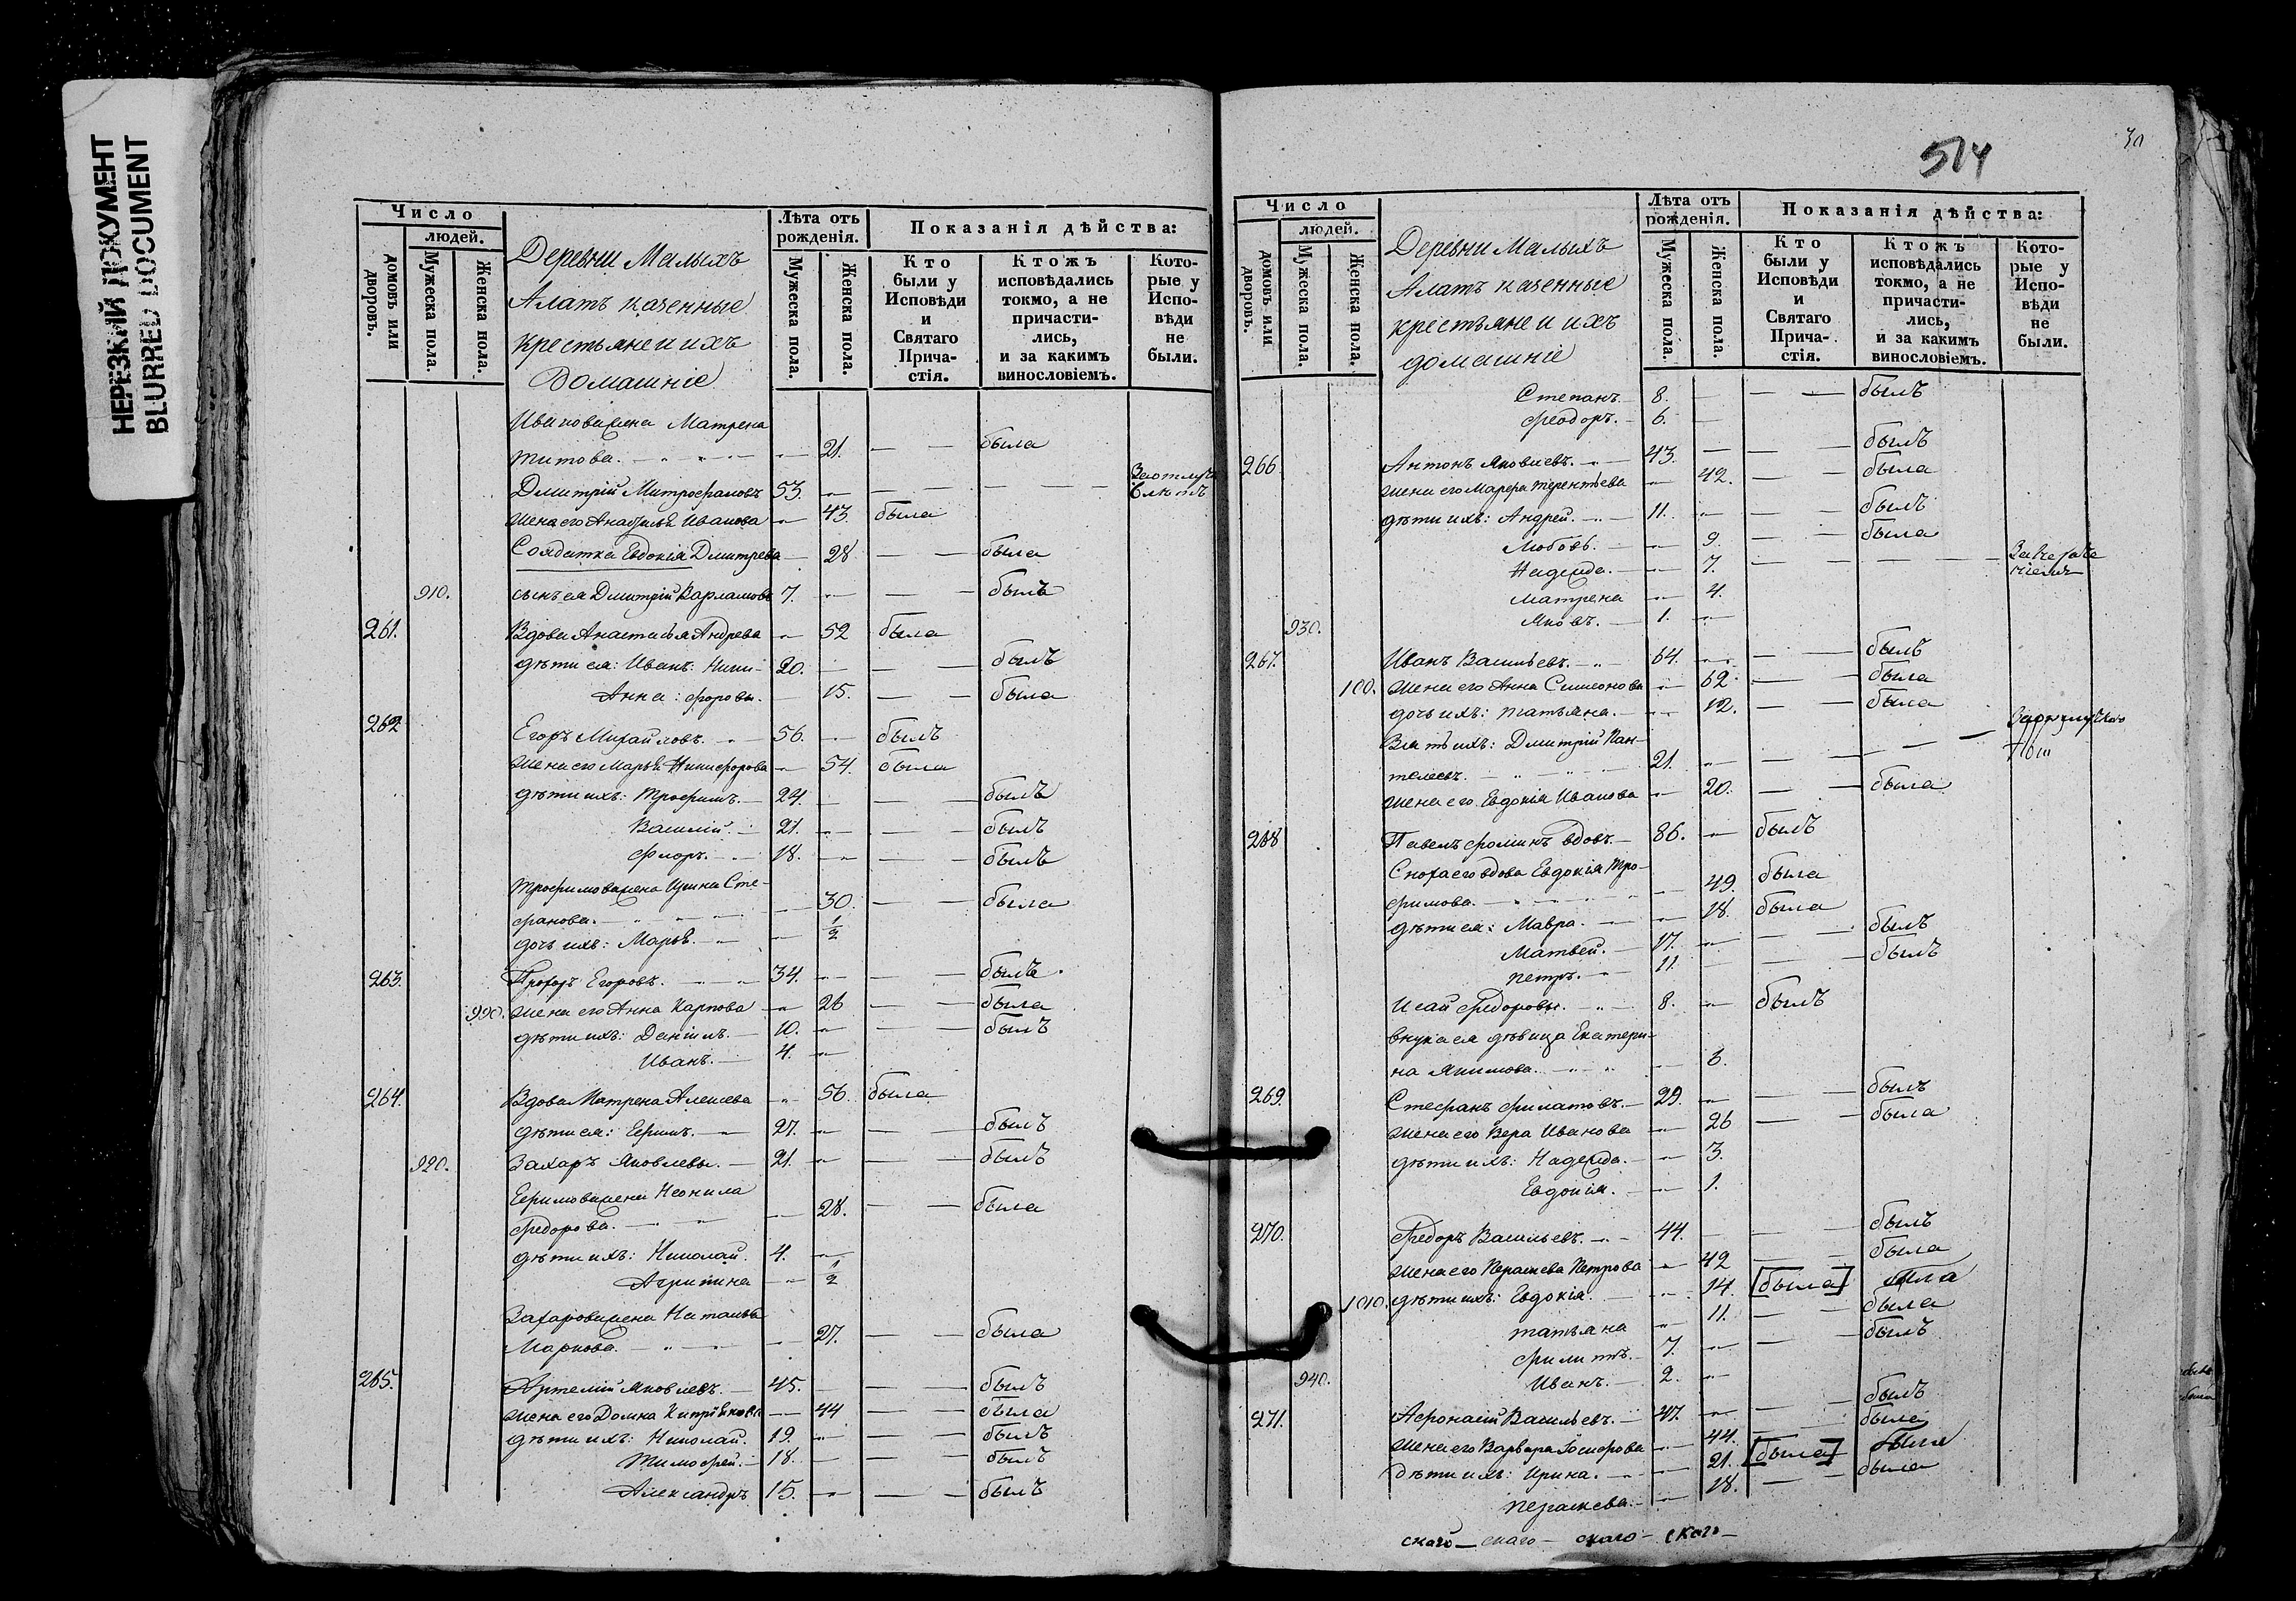 НЕРЕЗКИЙ ДОКУМЕНТ
BLURRED DOCUMENT
Число
людей.
домовъ или дворовъ.
Мужеска пола.
Женска пола.
Деревни Малыхъ
Алатъ казенные
крестьяне и ихъ
домашніе
Лѣта отъ рожденія.
Мужеска пола.
Женска пола.
Показанія дѣйства:
Кто были у Исповѣди и Святаго Прича-стія.
Ктожъ исповѣдались токмо, а не причасти-лись, и за какимъ винословіемъ.
Кото-рые у Испо-вѣди не были.
Ивановажена Матрена
Титова. — 21. — — была
Дмитрій Митрофановъ 53. — — — — За отлуч
жена его Иванова — 43. была
Солдатка Евдокія Дмитрева — 28 — — была
910. сынъ ея Дмитрій Варламовъ 7. — — — былъ
261. Вдова Анастасья Андрева — 52 была
дѣти ея: Иванъ: Ники- 20. — — — былъ
Анна: форовы. — 15. — — была
262 Егоръ Михайловъ. — 56. — былъ
жена его Марья Никифорова — 54. была
дѣти ихъ: Трофимъ. — 24. — — — былъ
Василій. — 21. — — — былъ
Флоръ. — 18. — — — былъ
Трофимоважена Ирина Сте-
фанова. — — 30. — — была
дочь ихъ: Марья. — — 1/2
263. Прохоръ Егоровъ. — 34. — — — былъ.
990. жена его Анна Карпова — 26 — — была
дѣти ихъ: Даніилъ. — 10. — — — былъ
Иванъ. — 4. —
264. Вдова Матрена Алексева — 56. была
дѣти ея: Ефимъ. — 27. — — — былъ
920. Захаръ Яковлевы. — 21. — — — былъ
Ефимоважена Неонила
Федорова. — — 28. — — была
дѣти ихъ: Николай. 4. —
Агрипина — 1/2
Захароважена Наталья
Маркова. — — 27. — — была
265. Артемій Яковлевъ. — 45. — — — былъ
жена его Домна Кипріянова — 44 — — была
дѣти ихъ: Николай. 19. — — — былъ
Тимофей. — 18. — — — былъ
Александръ 15. — — — былъ
30
514
Число
людей.
домовъ или дворовъ.
Мужеска пола.
Женска пола.
Деревни Малыхъ
Алатъ казенные
крестьяне и ихъ
домашніе
Лѣта отъ рожденія.
Мужеска пола.
Женска пола.
Показанія дѣйства:
Кто были у Исповѣди и Святаго Прича-стія.
Ктожъ исповѣдались токмо, а не причасти-лись, и за какимъ винословіемъ.
Кото-рые у Испо-вѣди не были.
Степанъ. 8. — — — былъ
Феодоръ. — 6. —
266. Антонъ Яковлевъ. — 43. — — былъ
жена его Марфа Терентьева — 42. — — была
дѣти ихъ: Андрей. — 11. — — — былъ
Любовь. — — 9. — — была
Надежда. — — 7. — — —
Матрена — 4.
930. Яковъ. — 1. —
267. Иванъ Васильевъ. — 64. — — — былъ
100. жена его Анна Симеонова — 62 — — была
дочь ихъ: Татьяна. — — 12. — — была
Зять ихъ: Дмитрій Пан-
телеевъ. — 21. — — — — —
жена его Евдокія Иванова — 20. — — была
268 Павелъ Фоминъ вдовъ. — 86. — былъ
Сноха его вдова Евдокія Тро-
фимова. — — 49. была
дѣти ея: Мавра. — — 18. была
Матвей. — 17. — — — былъ
Петръ. — 11. — — былъ
Исай Федоровы. — 8. — былъ
внука ея дѣвица Екатери-
на Якимова. — — 6.
269. Стефанъ Филатовъ. — 29. — — — былъ
жена его Вера Иванова — 26 — — была
дѣти ихъ: Надежда. — — 3.
Евдокія. — — 1.
270. Федоръ Васильевъ. — 44. — — былъ
жена его Парасковья Петрова — 42 — — была
1010. дѣти ихъ: Евдокія. — — 14. [была] была
Татьяна — 11. — — была
Филипъ. — 7. — — — былъ
940. Иванъ. — 2. —
271. Афонасій Васильевъ. — 47. — — былъ
жена его Варвара Іосифова — 44. — была
дѣти ихъ: Ирина. — — 21. [была] была
Параскева. — — 18. — — была
скаго — скаго — скаго — скаго —